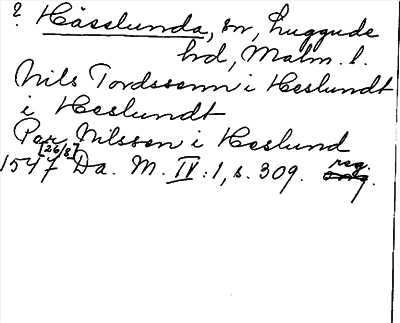 ? Hässlunda, sn, Luggude
hd, Malm. l.
Nils Tordssenn i Heslundt
i Heslundt
Per Nilssen i Heslund
[26/8]
1547 Da. M. IV:1, s. 309. reg.